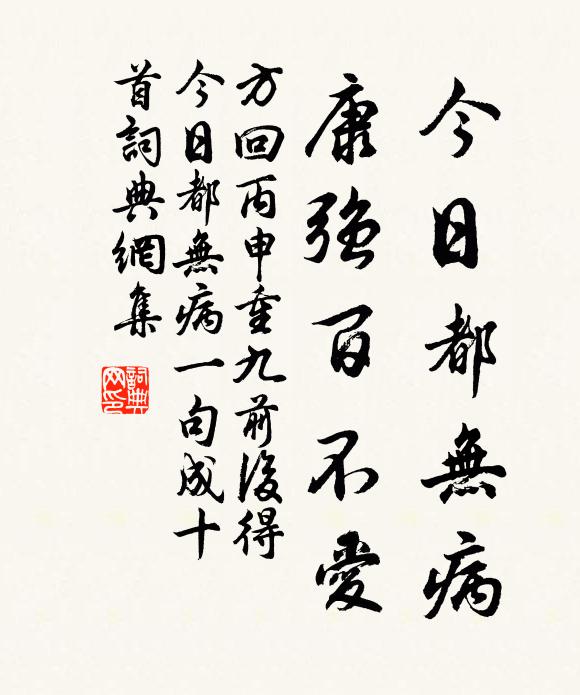 今日都無病
康強百不愛
方回丙申重九前後得
今日都無病一句成十
首詞典網集
詞典
网印